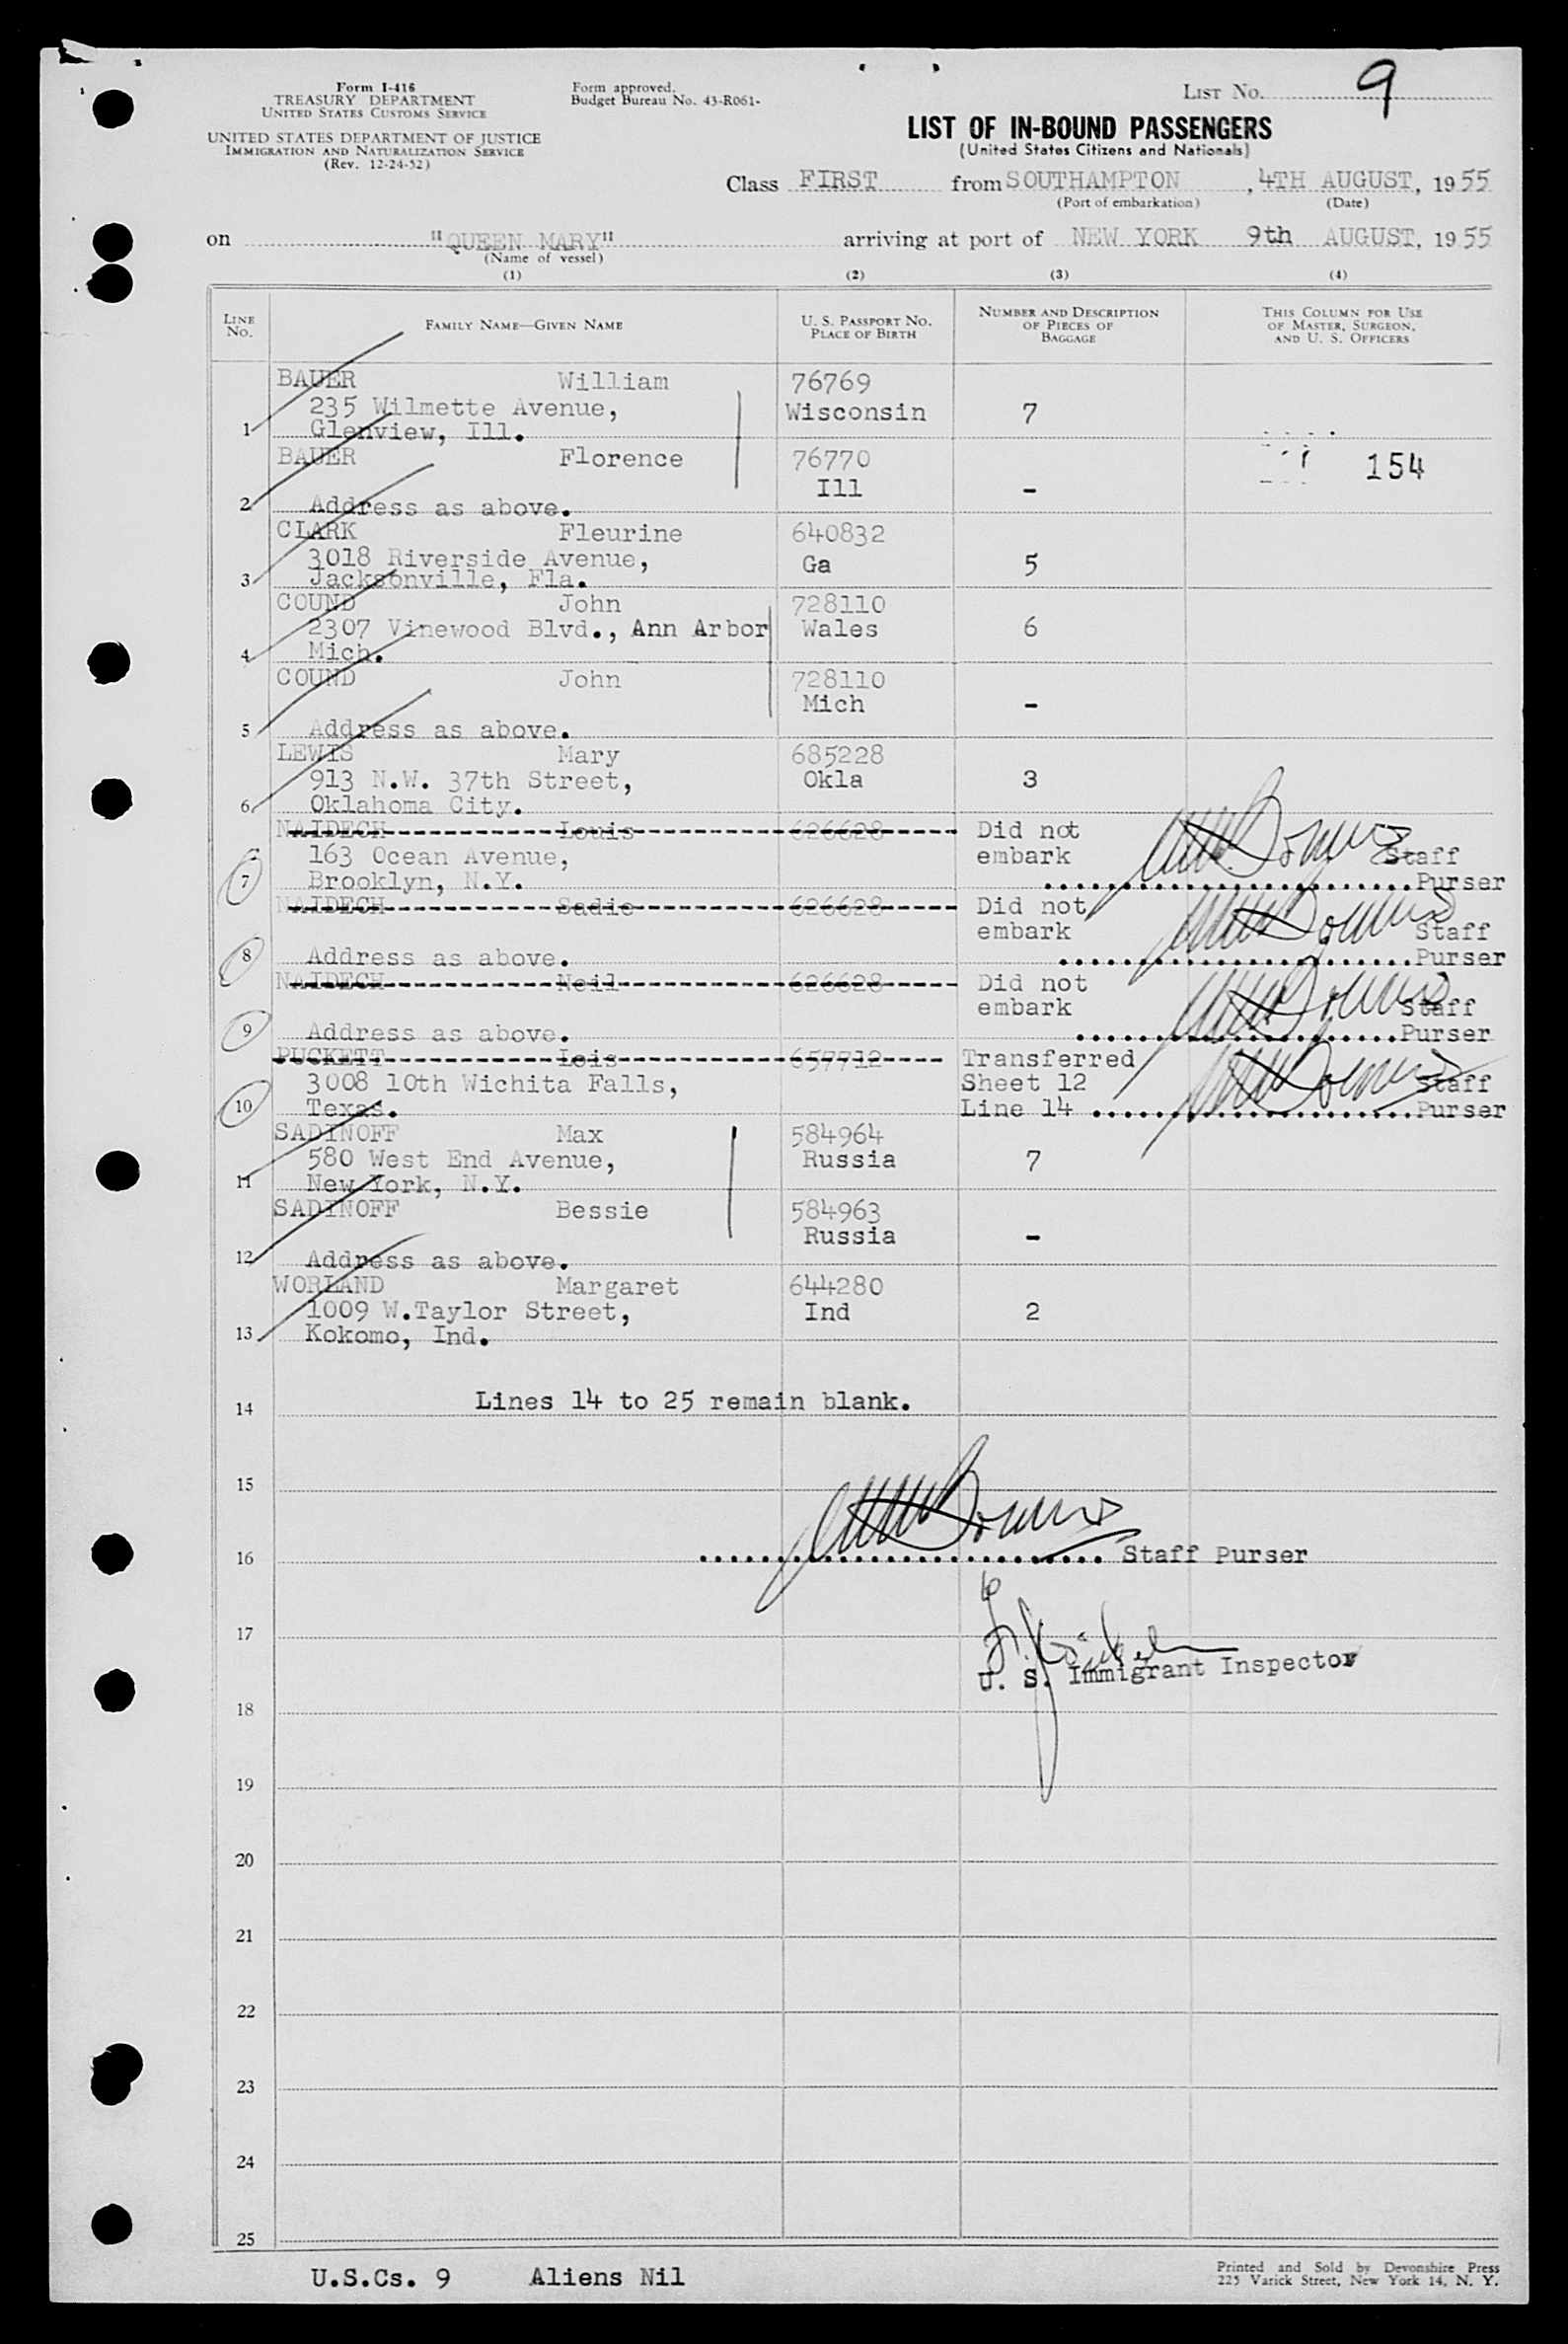 Form I-416
TREASURY DEPARTMENT
UNITED STATES CUSTOMS SERVICE
UNITED STATES DEPARTMENT OF JUSTICE
IMMIGRATION AND NATURALIZATION SERVICE
(Rev. 12-24-52)
Form approved.
Budget Bureau No. 43-R061-
LIST NO. 9
LIST OF IN-BOUND PASSENGERS
(United States Citizens and Nationals)
Class FIRST from SOUTHAMPTON, 4TH AUGUST, 1955
(Port of embarkation) (Date)
on "QUEEN MARY" arriving at port of NEW YORK 9th AUGUST, 1955
(Name of vessel)
(1) (2) (3) (4)
LINE NO. FAMILY NAME—GIVEN NAME U. S. PASSPORT NO. PLACE OF BIRTH NUMBER AND DESCRIPTION OF PIECES OF BAGGAGE THIS COLUMN FOR USE OF MASTER, SURGEON, AND U. S. OFFICERS
BAUER William 76769
235 Wilmette Avenue, Wisconsin 7
1 Glenview, Ill.
BAUER Florence 76770 154
Ill -
2 Address as above.
CLARK Fleurine 640832
3018 Riverside Avenue, Ga 5
3 Jacksonville, Fla.
COUND John 728110
2307 Vinewood Blvd., Ann Arbor Wales 6
4 Mich.
COUND John 728110
Mich -
5 Address as above.
LEWIS Mary 685228
913 N.W. 37th Street, Okla 3
6 Oklahoma City.
NAIDECH Louis 626628 Did not
163 Ocean Avenue, embark Staff
7 Brooklyn, N.Y. Purser
NAIDECH Sadie 626628 Did not
embark Staff
8 Address as above. Purser
NAIDECH Neil 626628 Did not
embark Staff
9 Address as above. Purser
PUCKETT Lois 657712 Transferred
3008 10th Wichita Falls, Sheet 12 Staff
10 Texas. Line 14 Purser
SADINOFF Max 584964
580 West End Avenue, Russia 7
11 New York, N.Y.
SADINOFF Bessie 584963
Russia -
12 Address as above.
WORLAND Margaret 644280
1009 W.Taylor Street, Ind 2
13 Kokomo, Ind.
Lines 14 to 25 remain blank.
14
15
16 Staff Purser
17
U. S. Immigrant Inspector
18
19
20
21
22
23
24
25
U.S.Cs. 9 Aliens Nil
Printed and Sold by Devonshire Press
225 Varick Street, New York 14, N. Y.